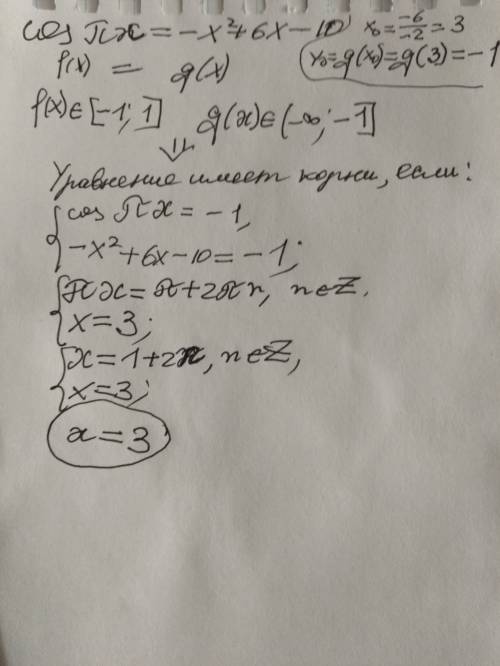 cos πx = -x²+6x-10 x₀ = -6/-2 = 3
f(x) = g(x) y₀=g(x₀)=g(3)=-1
f(x)∈[-1; 1] g(x)∈(-∞; -1]
⇓
Уравнение имеет корни, если:
{cos πx = -1,
-x²+6x-10 = -1;
{πx = π+2πn, n∈Z.
x=3;
{x=1+2n, n∈Z,
x=3;
x=3